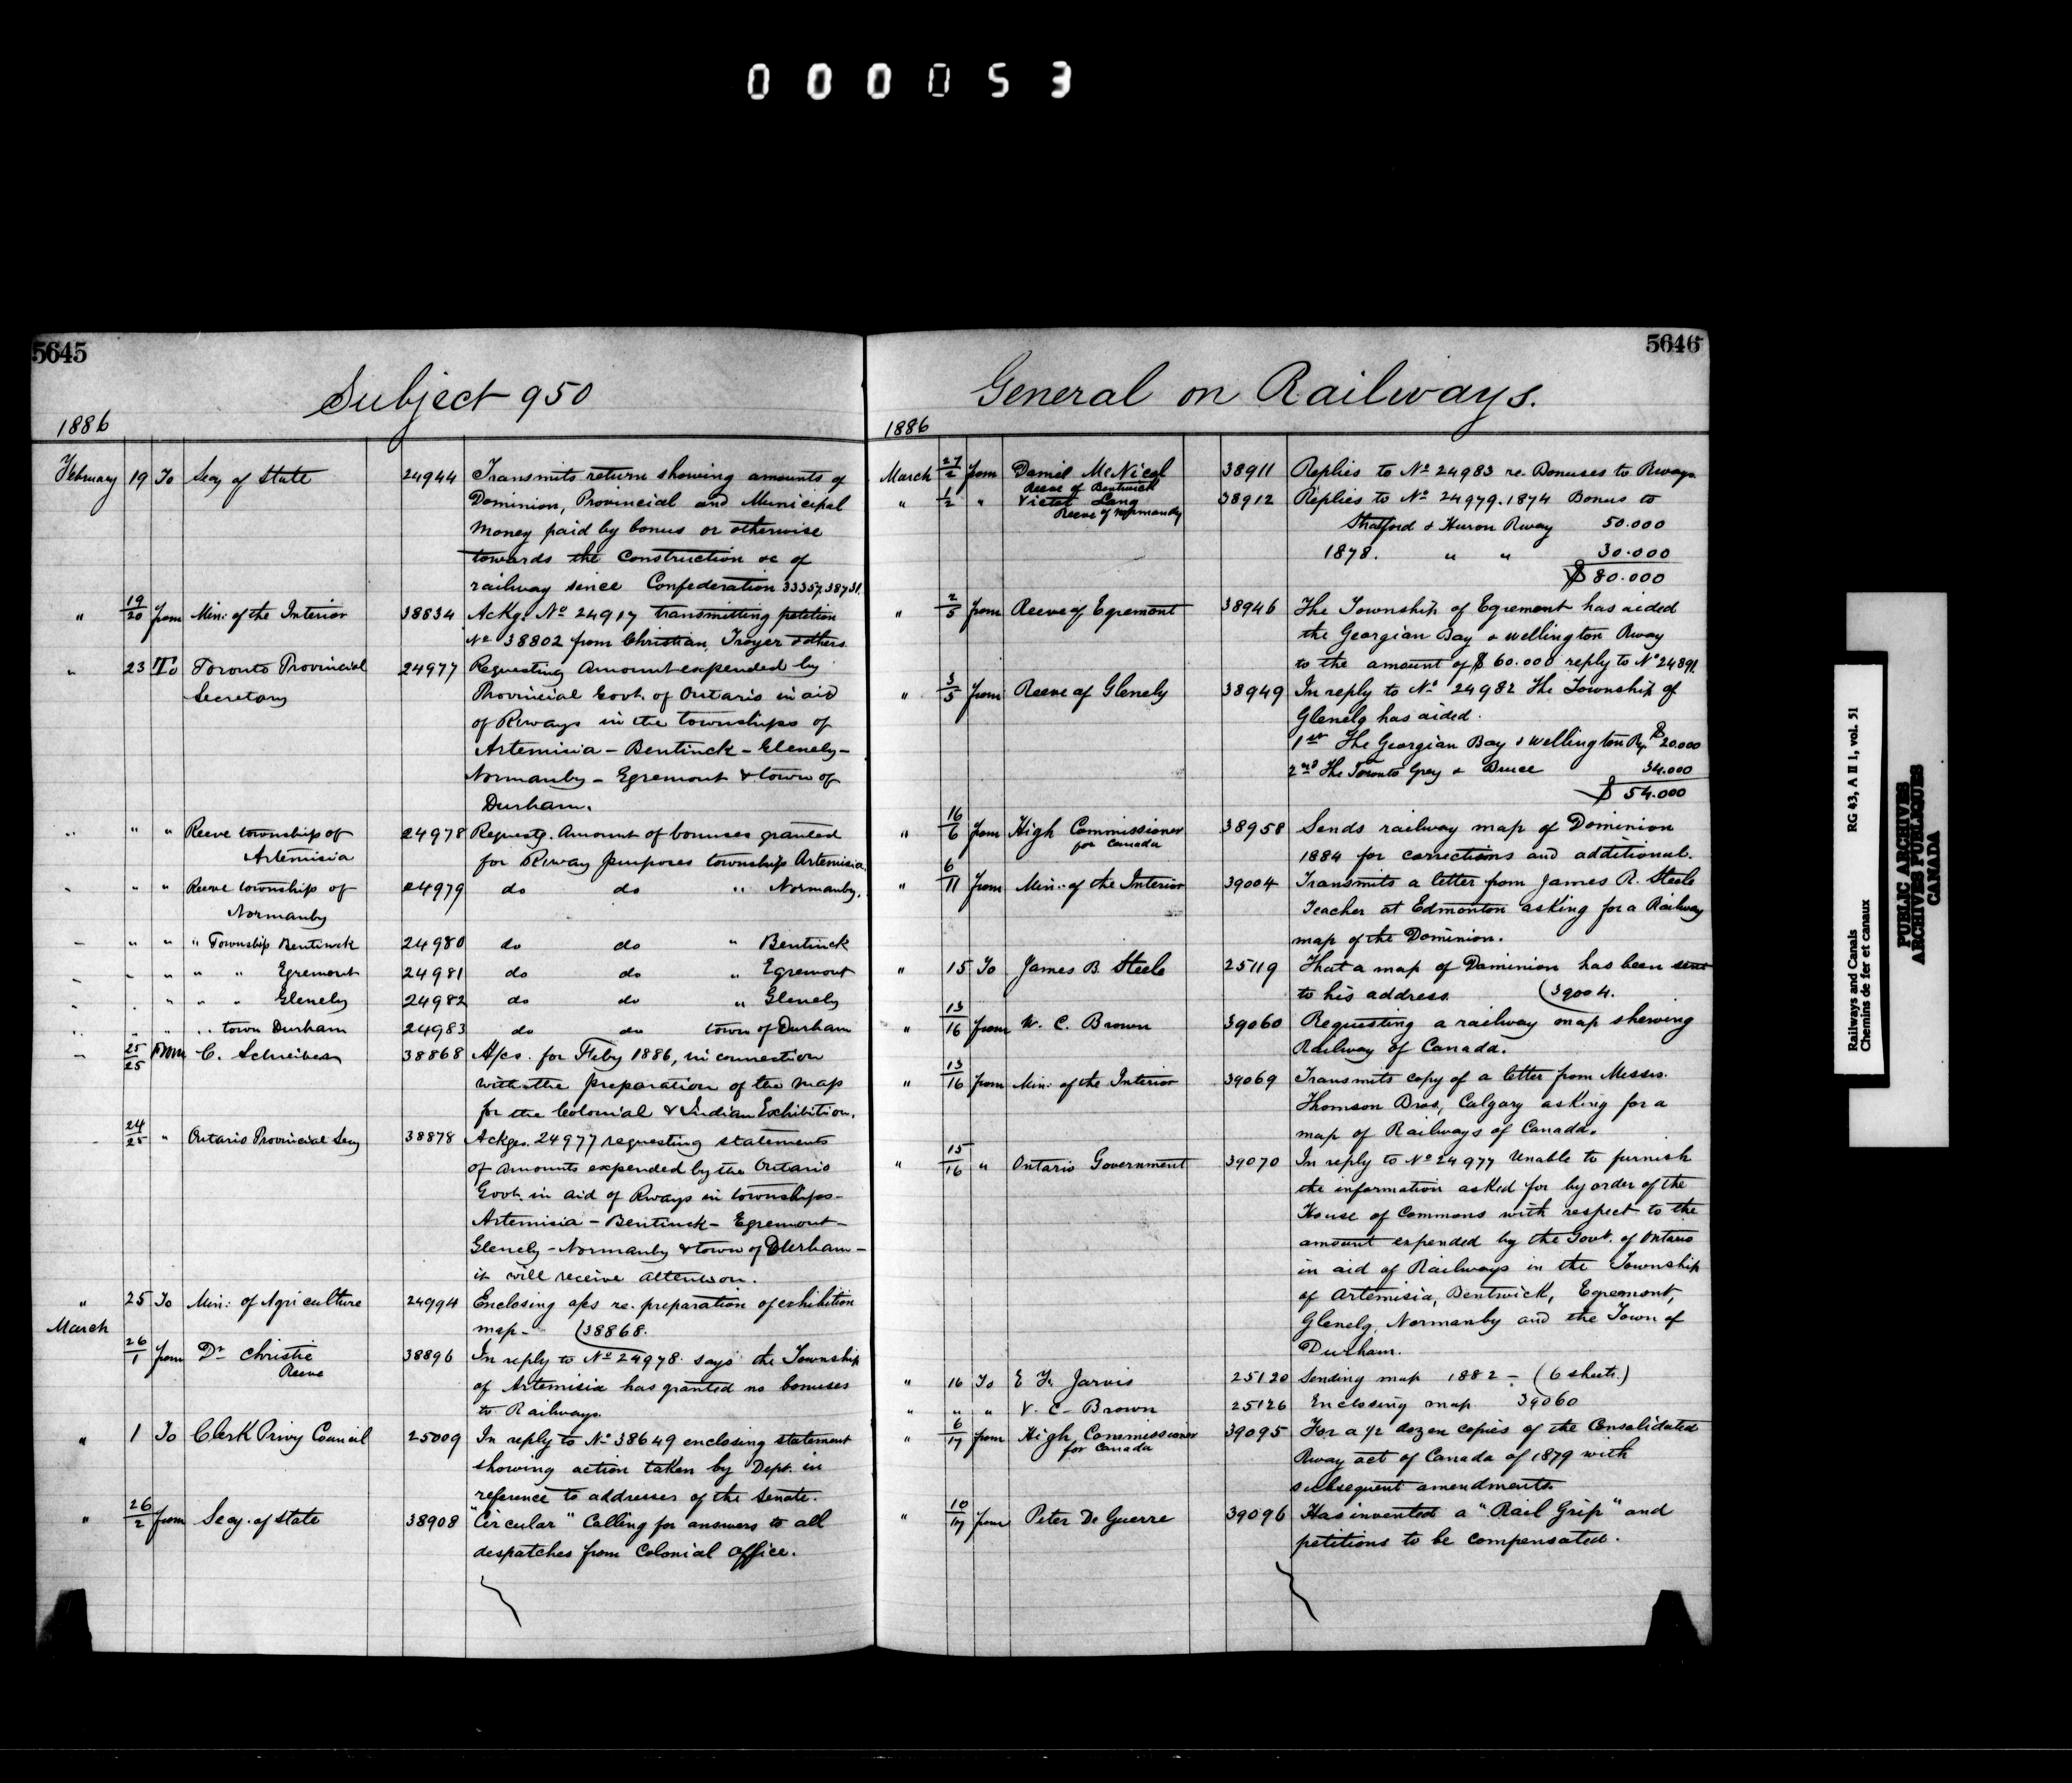 000053
5645
Subject 950
1886
February 19 To Secy of State 24944 Transmits return showing amounts of
Dominion, Provincial and Municipal
Money paid by bonus or otherwise
towards the Construction &c of
railway since Confederation 33357.38731.
" 19/20 from Min: of the Interior 38834 Ackg. No 24917 transmitting petition
No 38802 from Christian Troyer & others
" 23 To Toronto Provincial 24977 Requesting Amount expended by
Secretary Provincial Govt. of Ontario in aid
of Rways in the townships of
Artemisia - Bentinck - Glenely -
Normanby - Egremont & town of
Durham.
" " " Reeve township of 24978 Requestg. Amount of bonuses granted
Artemisia for Rway purposes township Artemisia
" " " Reeve township of 24979 do do " Normanby.
Normanby
" " " " Township Bentinck 24980 do do " Bentinck
" " " " " Egremont 24981 do do " Egremont
" " " " " Glenely 24982 do do " Glenely
" " " " town Durham 24983 do do town of Durham
" 25/25 From C. Schreiber 38868 A/cs. for Feby 1886, in connection
with the preparation of the map
for the Colonial & Indian Exhibition.
" 24/25 " Ontario Provincial Secy 38878 Ackges. 24977 requesting statements
of amounts expended by the Ontario
Govt. in aid of Rways in townships -
Artemisia - Bentinck - Egremont -
Glenely - Normanby & town of Durham -
it will receive attention.
" 25 To Min: of Agriculture 24994 Enclosing a/cs re. preparation of exhibition
March map - (38868.
26/1 from Dr Christie 38896 In reply to No 24978. says the Township
Reeve of Artemisia has granted no bonuses
to Railways.
" 1 To Clerk Privy Council 25009 In reply to No 38649 enclosing statement
showing action taken by Dept. in
reference to addresses of the Senate.
" 26/2 from Secy. of State 38908 "Circular" Calling for answers to all
despatches from Colonial Office.
5646
General on Railways.
1886
March 27/2 from Daniel McNicol 38911 Replies to No 24983 re. Bonuses to Rways
Reeve of Bentwick
" 1/2 " Victor Lang 38912 Replies to No 24979. 1874 Bonus to
Reeve of Normandy
Stratford & Huron Rway 50.000
1878. " " 30.000
$ 80.000
" 2/5 from Reeve of Egremont 38946 The Township of Egremont has aided
the Georgian Bay & Wellington Rway
to the amount of $ 60.000 reply to No 24891.
" 3/5 from Reeve of Glenely 38949 In reply to No 24982 The Township of
Glenelg has aided.
1st The Georgian Bay & Wellington Ry. $ 20.000
2nd The Toronto Grey & Bruce 34.000
$ 54.000
" 16/6 from High Commissioner 38958 Sends railway map of Dominion
for Canada 1884 for corrections and additional.
" 6/11 from Min: of the Interior 39004 Transmits a letter from James R. Steele
Teacher at Edmonton asking for a Railway
map of the Dominion.
" 15 To James B Steele 25119 That a map of Dominion has been sent
to his address. (39004.
" 13/16 from W. C. Brown 39060 Requesting a railway map shewing
Railway of Canada.
" 13/16 from Min: of the Interior 39069 Transmits copy of a letter from Messrs.
Thomson Bros, Calgary asking for a
map of Railways of Canada.
" 15/16 " Ontario Government 39070 In reply to No 24977 Unable to furnish
the information asked for by order of the
House of Commons with respect to the
amount expended by the Govt. of Ontario
in aid of Railways in the Township
of Artemisia, Bentwick, Egremont,
Glenelg, Normanby and the Town of
Durham.
" 16 To E Jarvis 25120 Sending map 1882 - (6 sheets.)
" " " C. Brown 25126 Enclosing map 39060
" 6/17 from High Commissioner 39095 For a 1/2 dozen copies of the Consolidated
for Canada Rway act of Canada of 1879 with
subsequent amendments.
" 10/17 from Peter De Guerre 39096 Has invented a "Rail Grip" and
petitions to be compensated.
Railways and Canals RG 43, A II 1, vol. 51
Chemins de fer et canaux
PUBLIC ARCHIVES
ARCHIVES PUBLIQUES
CANADA